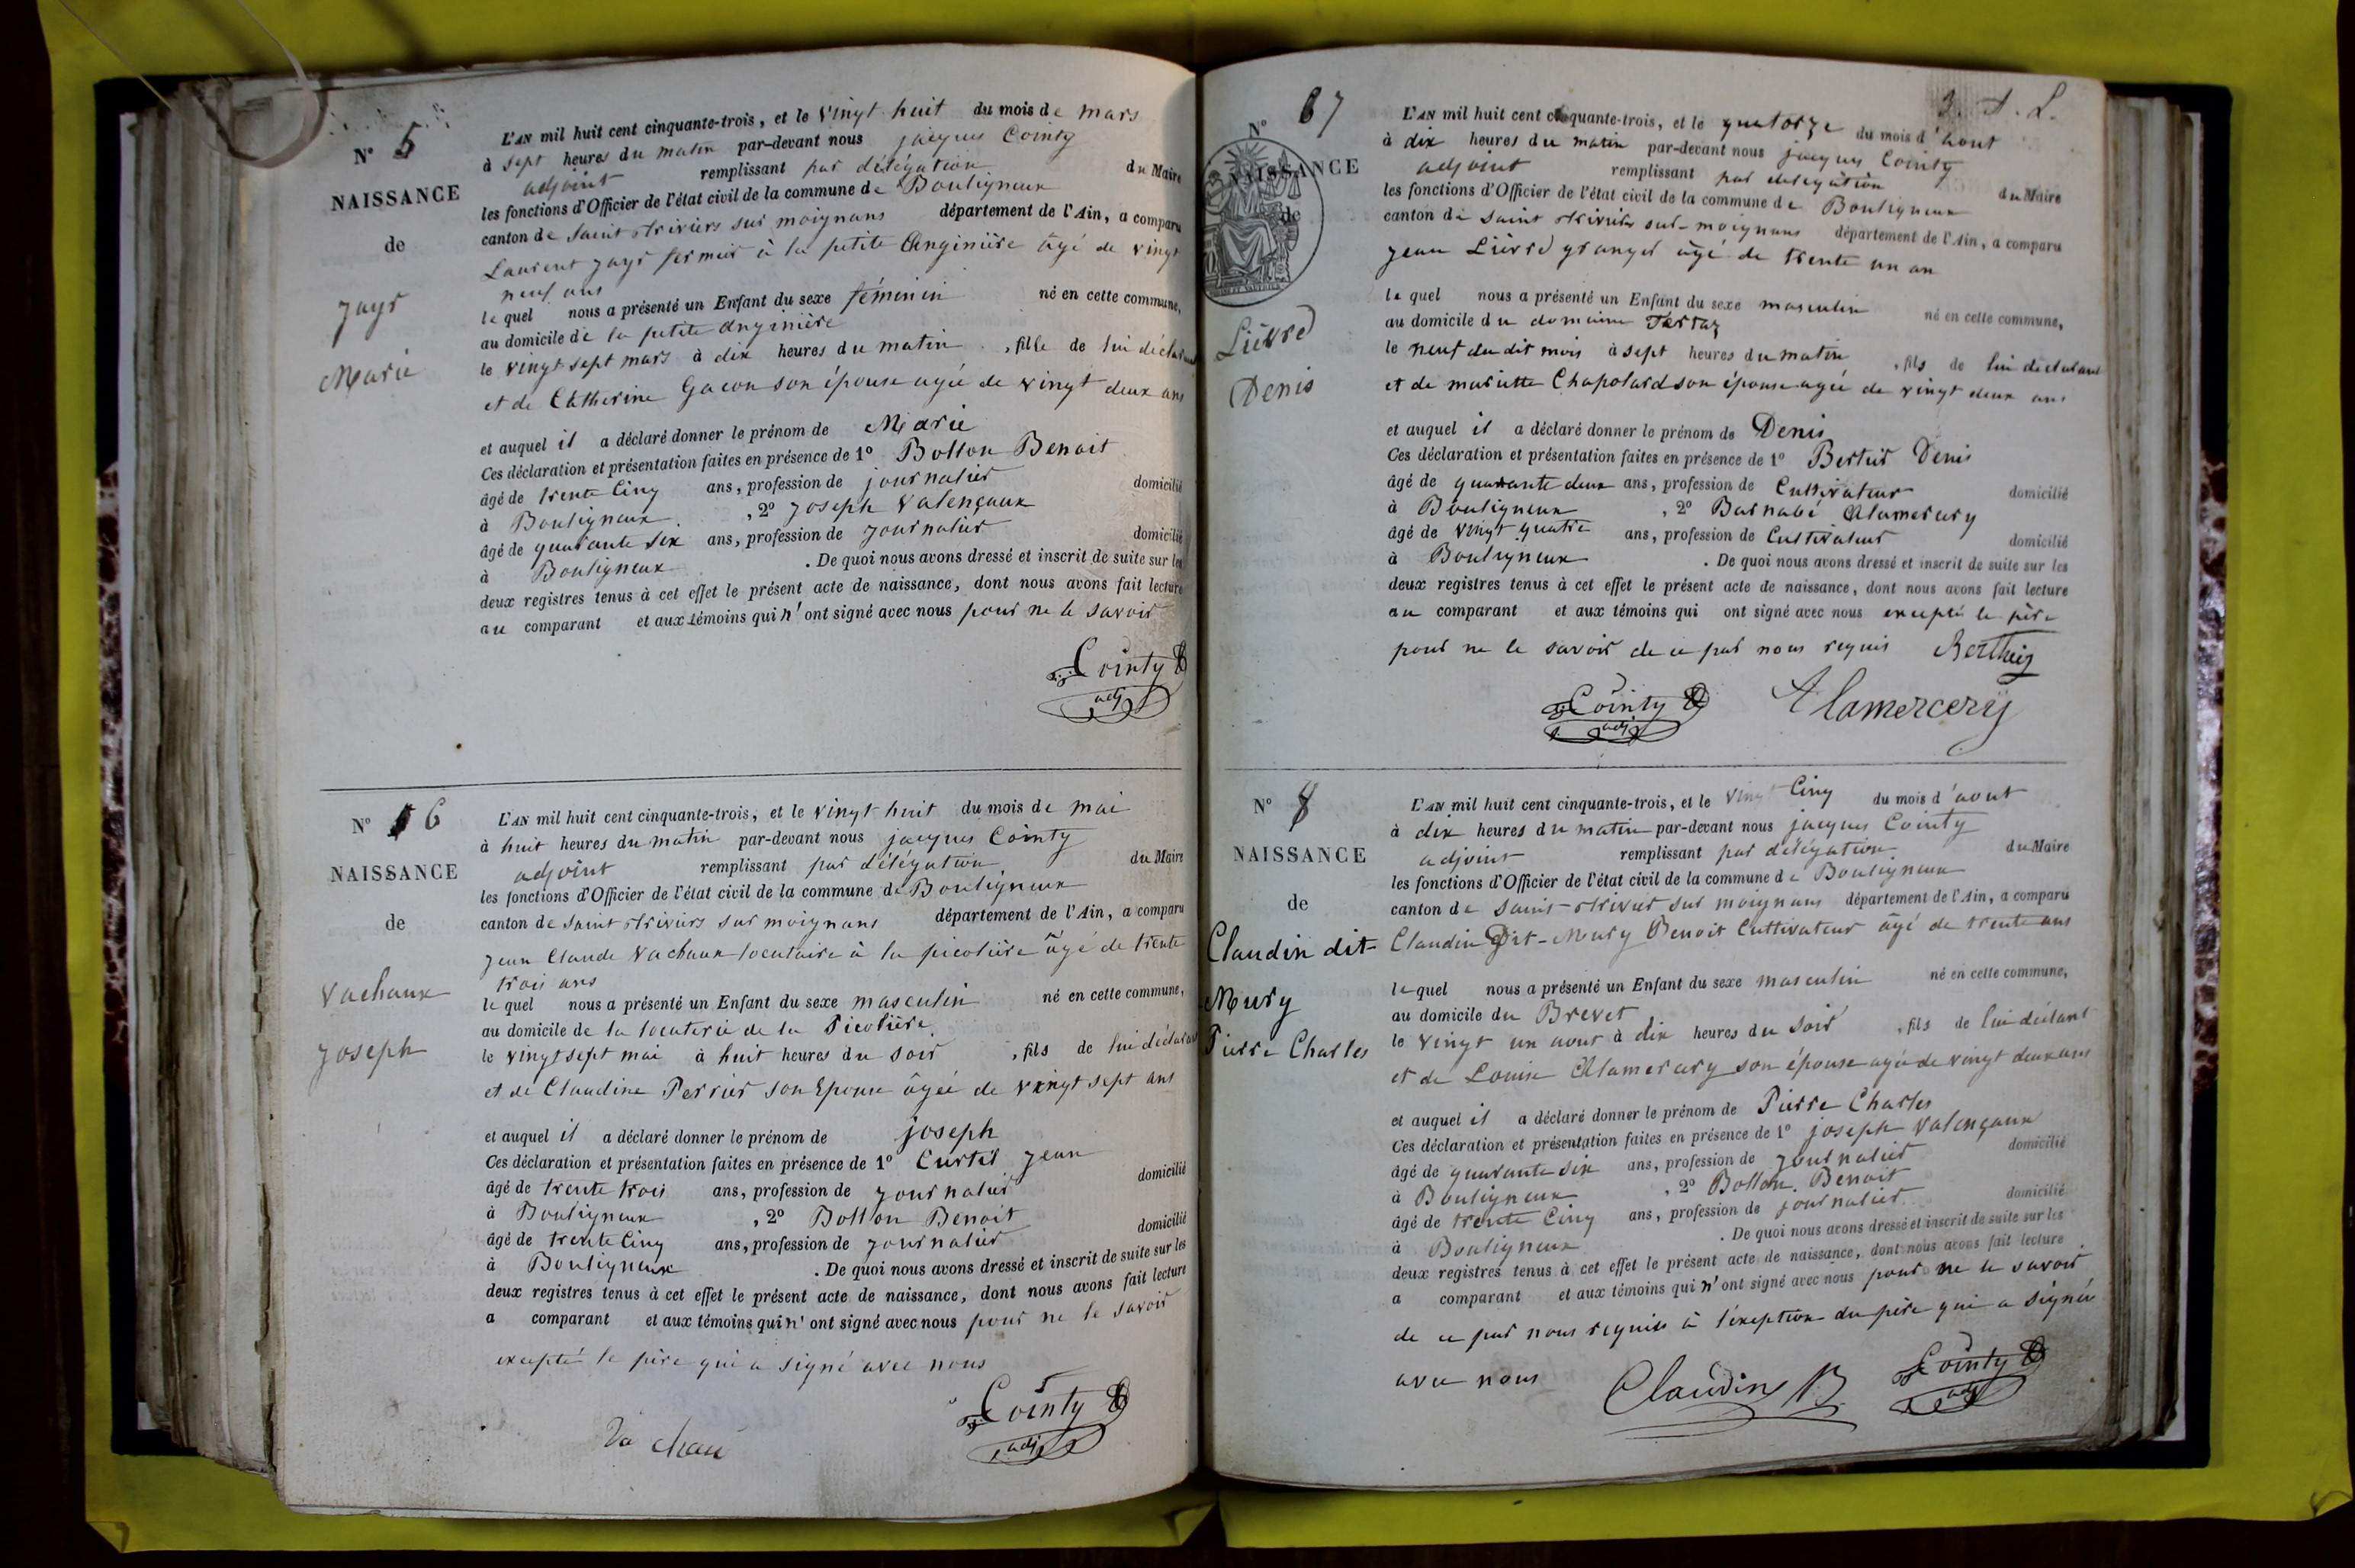 N° 5
NAISSANCE
de
Jayr
Marie
L'AN mil huit cent cinquante-trois, et le vingt huit du mois de mars
à sept heures du matin par-devant nous jacques Cointy
adjoint remplissant par délégation du Maire
les fonctions d'Officier de l'état civil de la commune de Bouligneux
canton de Saint trivier sur moignans département de l'Ain, a comparu
Laurent jayr fermier à la petite Anginière âgé de vingt
neuf ans
le quel nous a présenté un Enfant du sexe féminin né en cette commune,
au domicile de la petite anginière
le vingt sept mars à dix heures du matin , fille de lui déclarant
et de Catherine Gacon son épouse agée de vingt deux ans
et auquel il a déclaré donner le prénom de Marie
Ces déclaration et présentation faites en présence de 1° Bolton Benoit
âgé de trente Cinq ans, profession de journalier domicilié
à Bouligneux , 2° joseph Valençaux
âgé de quarante six ans, profession de journalier domicilié
à Bouligneux . De quoi nous avons dressé et inscrit de suite sur les
deux registres tenus à cet effet le présent acte de naissance, dont nous avons fait lecture
au comparant et aux témoins qui n'ont signé avec nous pour ne le savoir
Cointy
adj
N° 6
NAISSANCE
de
Vachaux
joseph
L'AN mil huit cent cinquante-trois, et le vingt huit du mois de mai
à huit heures du matin par-devant nous jacques Cointy
adjoint remplissant par délégation du Maire
les fonctions d'Officier de l'état civil de la commune de Bouligneux
canton de Saint trivier sur moignans département de l'Ain, a comparu
jean Claude Vachaux locataire à la picotière âgé de trente
trois ans
le quel nous a présenté un Enfant du sexe masculin né en cette commune,
au domicile de la locaterie de la Picotière
le vingt sept mai à huit heures du soir , fils de lui déclarant
et de Claudine Perrier son Epouse âgée de vingt sept ans
et auquel il a déclaré donner le prénom de joseph
Ces déclaration et présentation faites en présence de 1° Curtil jean
âgé de trente trois ans, profession de journalier domicilié
à Bouligneux , 2° Bolton Benoit
âgé de trente Cinq ans, profession de journalier domicilié
à Bouligneux . De quoi nous avons dressé et inscrit de suite sur les
deux registres tenus à cet effet le présent acte de naissance, dont nous avons fait lecture
a comparant et aux témoins qui n'ont signé avec nous pour ne le savoir
excepté le père qui a signé avec nous
Cointy
adj
Vachau
N° 7
NAISSANCE
de
Lièvre
Denis
J. A. L.
L'AN mil huit cent cinquante-trois, et le quatorze du mois d'aout
à dix heures du matin par-devant nous jacques Cointy
adjoint remplissant par délégation du Maire
les fonctions d'Officier de l'état civil de la commune de Bouligneux
canton de Saint trivier sur-moignans département de l'Ain, a comparu
jean Lièvre granger âgé de trente un an
le quel nous a présenté un Enfant du sexe masculin né en cette commune,
au domicile du domaine Tartaz
le neuf du dit mois à sept heures du matin , fils de lui déclarant
et de mariette Chapolard son épouse agée de vingt deux ans
et auquel il a déclaré donner le prénom de Denis
Ces déclaration et présentation faites en présence de 1° Bertier Denis
âgé de quarante deux ans, profession de Cultivateur domicilié
à Bouligneux , 2° Barnabé Alamercery
âgé de vingt quatre ans, profession de Cultivateur domicilié
à Bouligneux . De quoi nous avons dressé et inscrit de suite sur les
deux registres tenus à cet effet le présent acte de naissance, dont nous avons fait lecture
au comparant et aux témoins qui ont signé avec nous excepté le père
pour ne le savoir de ce par nous requis Berthier
Cointy Alamercery
adj
N° 8
NAISSANCE
de
Claudin dit-
Mury
Pierre Charles
L'AN mil huit cent cinquante-trois, et le vingt Cinq du mois d'aout
à dix heures du matin par-devant nous jacques Cointy
adjoint remplissant par délégation du Maire
les fonctions d'Officier de l'état civil de la commune de Bouligneux
canton de Saint-trivier sur moignans département de l'Ain, a comparu
Claudin Dit-Mury Benoit Cultivateur âgé de trente ans
le quel nous a présenté un Enfant du sexe masculin né en cette commune,
au domicile du Brevet
le vingt un aout à dix heures du soir , fils de lui déclarant
et de Louise Alamercery son épouse agée de vingt deux ans
et auquel il a déclaré donner le prénom de Pierre Charles
Ces déclaration et présentation faites en présence de 1° joseph Valençaux
âgé de quarante six ans, profession de journalier domicilié
à Bouligneux , 2° Bolton Benoit
âgé de trente Cinq ans, profession de journalier domicilié
à Bouligneux . De quoi nous avons dressé et inscrit de suite sur les
deux registres tenus à cet effet le présent acte de naissance, dont nous avons fait lecture
a comparant et aux témoins qui n'ont signé avec nous pour ne le savoir
de ce par nous requis à l'exeption du père qui a signé
avec nous Claudin B Cointy
adj